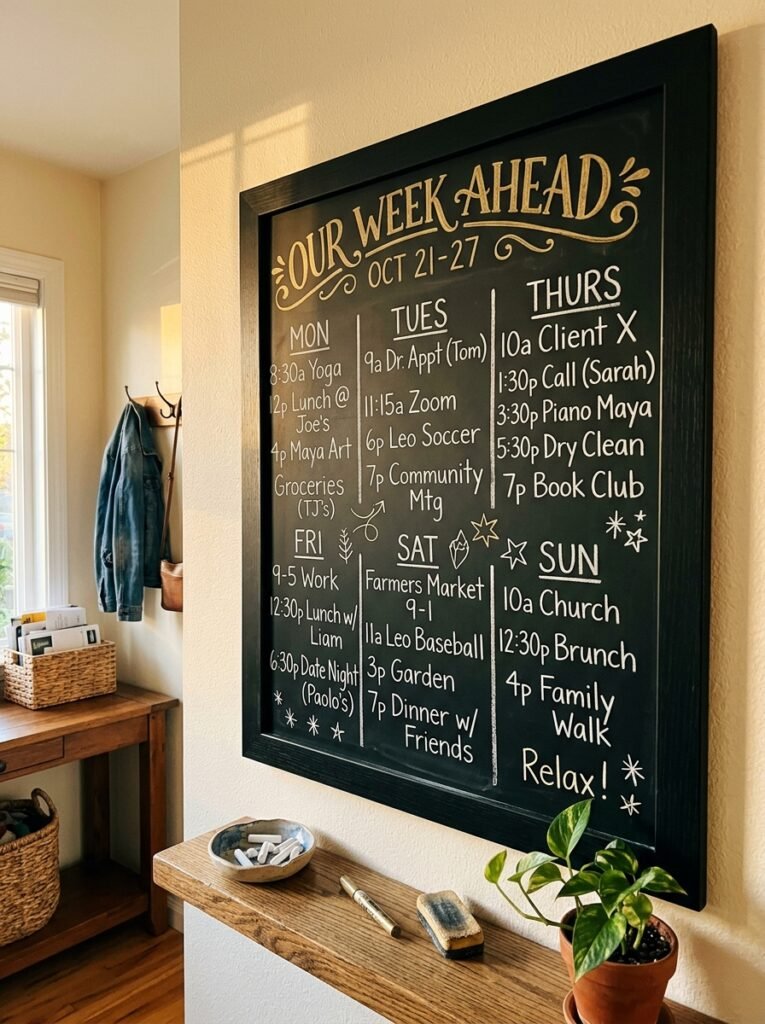 OUR WEEK AHEAD
OCT 21-27
MON
8:30a Yoga
12p Lunch @
Joe's
4p Maya Art
Groceries
(TJ's)
TUES
9a Dr. Appt (Tom)
11:15a Zoom
6p Leo Soccer
7p Community
Mtg
THURS
10a Client X
1:30p Call (Sarah)
3:30p Piano Maya
5:30p Dry Clean
7p Book Club
FRI
9-5 Work
12:30p Lunch w/
Liam
6:30p Date Night
(Paolo's)
SAT
Farmers Market
9-1
11a Leo Baseball
3p Garden
7p Dinner w/
Friends
SUN
10a Church
12:30p Brunch
4p Family
Walk
Relax!